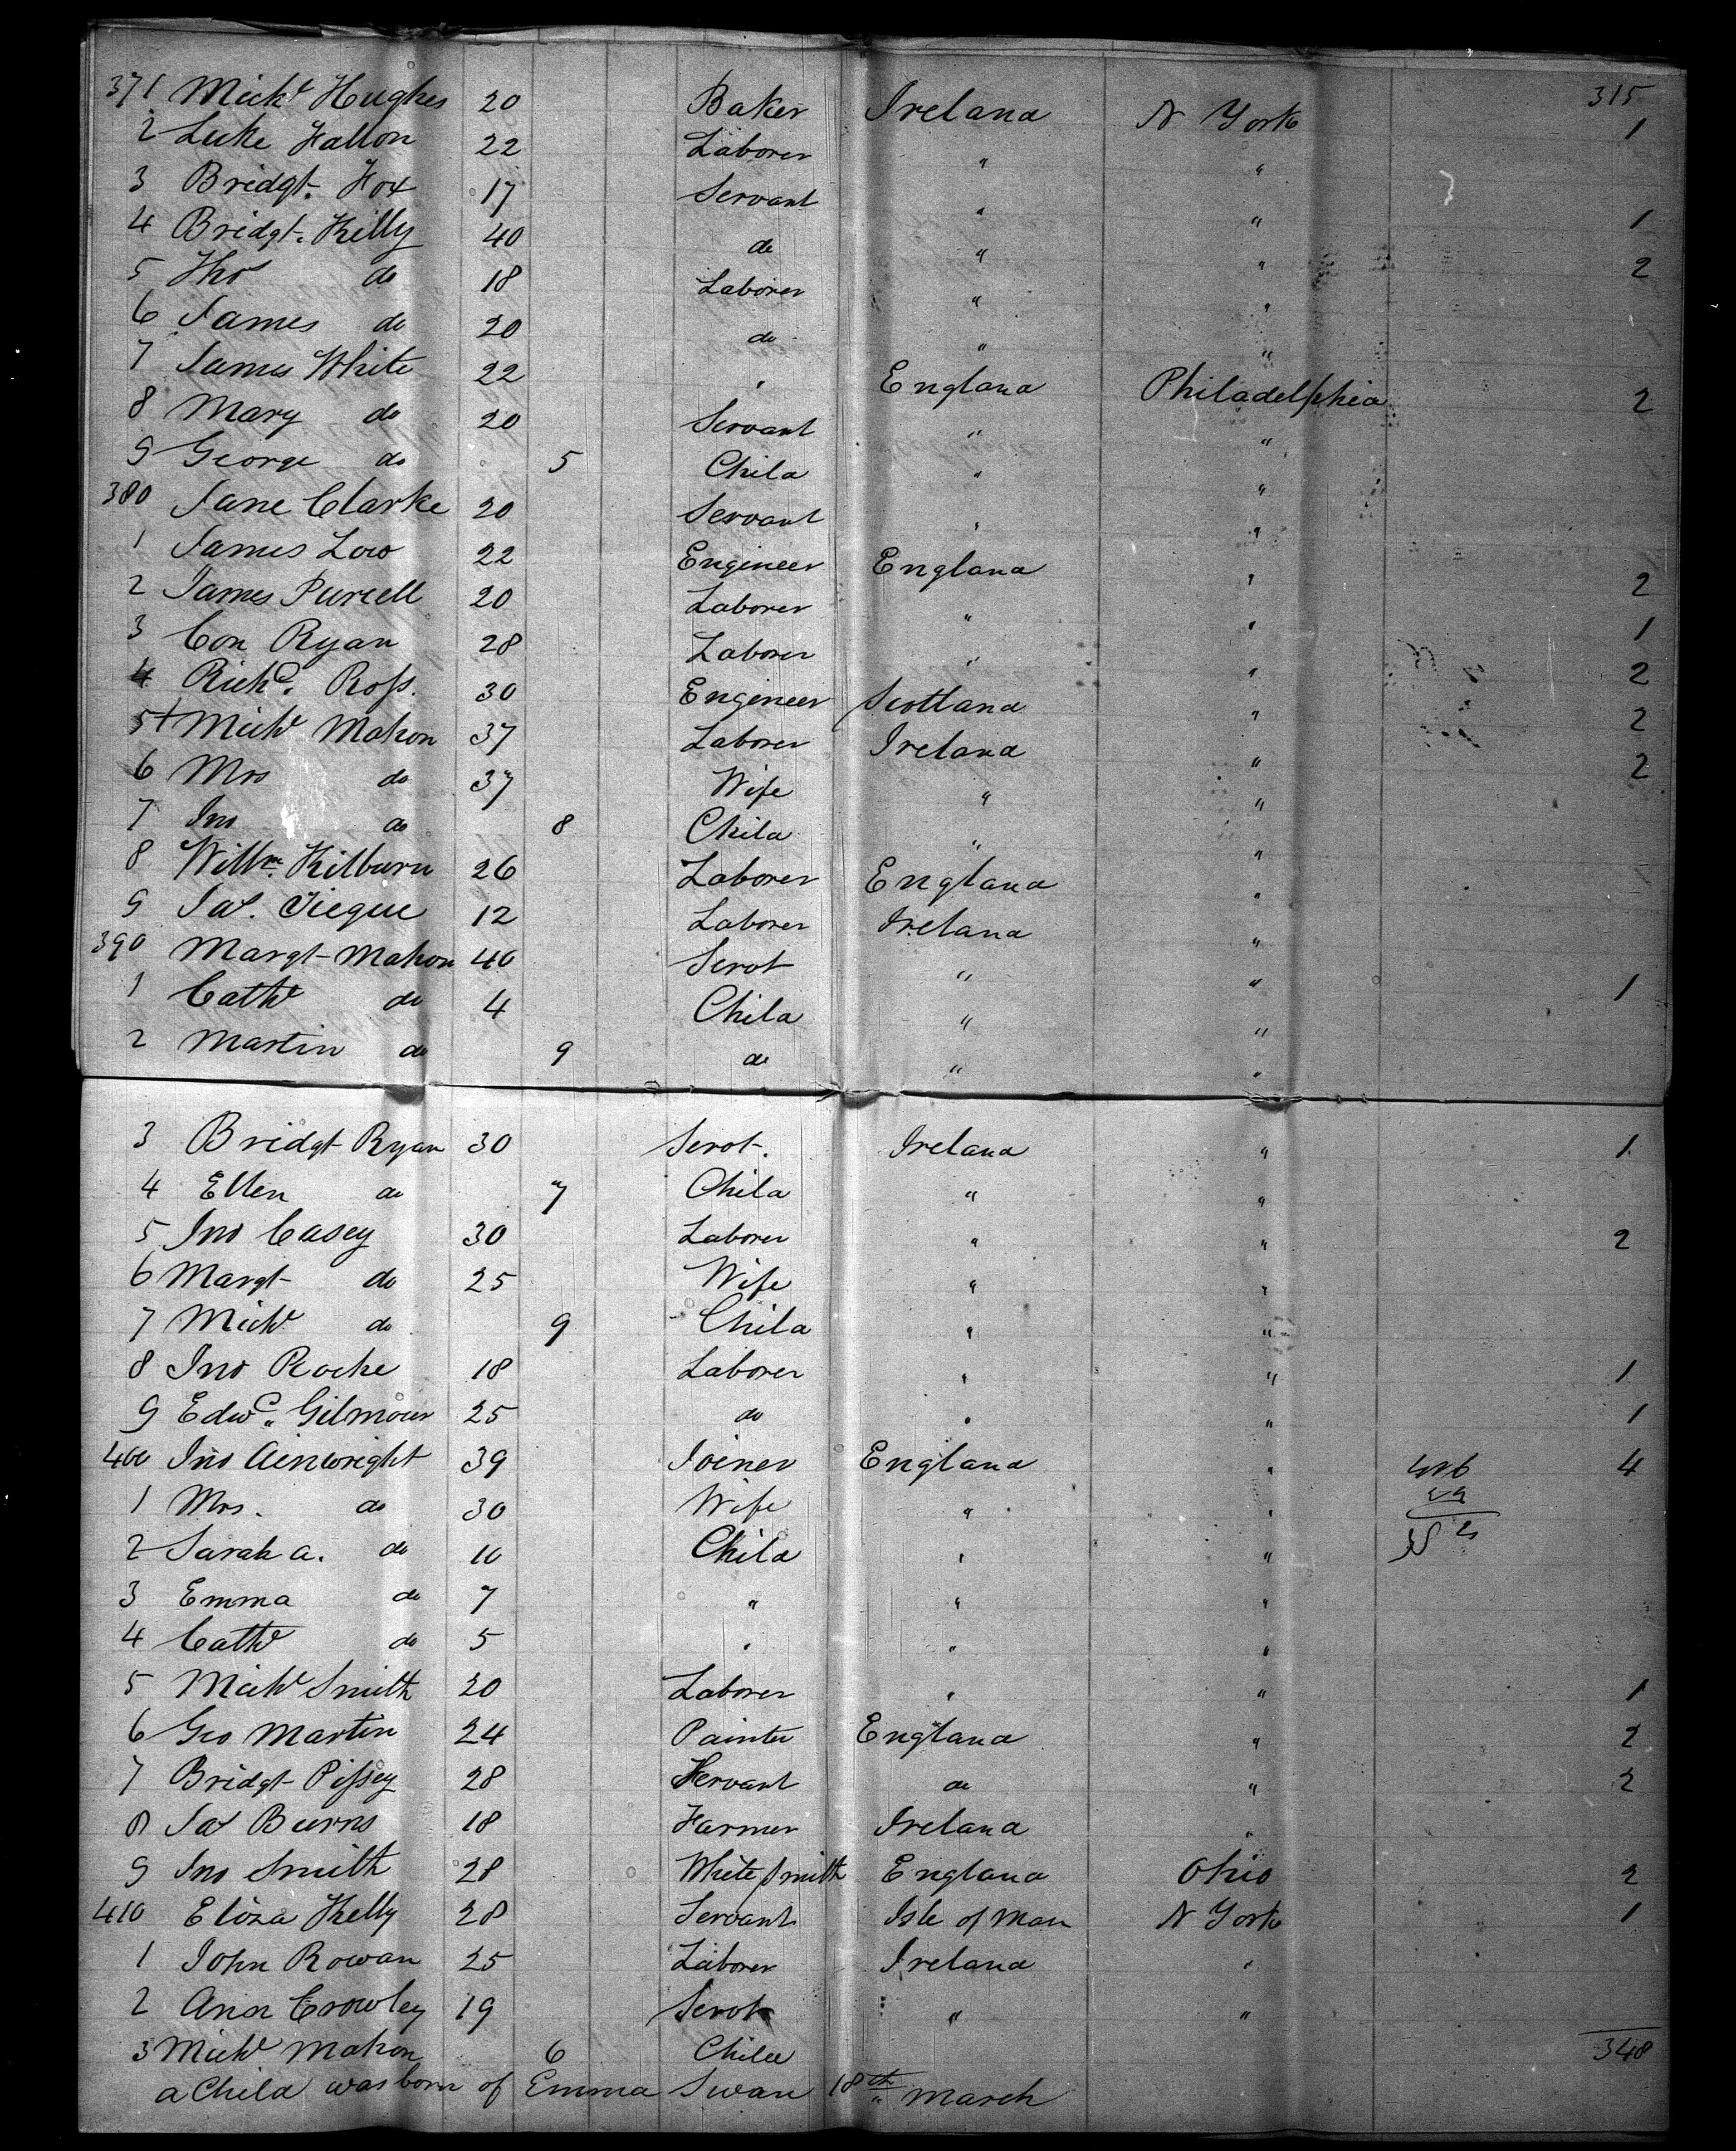 315
371 Michl Hughes 20 Baker Ireland N York 1
2 Luke Fallon 22 Laborer " "
3 Bridgt. Fox 17 Servant " " 1
4 Bridgt. Killy 40 do " " 2
5 Tho do 18 Laborer " "
6 James do 20 do " "
7 James White 22 " England Philadelphia 2
8 Mary do 20 Servant " "
9 George do 5 Child " "
380 Jane Clarke 20 Servant " "
1 James Low 22 Engineer England " 2
2 James Purcell 20 Laborer " " 1
3 Con Ryan 28 Laborer " " 2
4 Richd. Ross. 30 Engineer Scotland " 2
5 + Michl Mahon 37 Laborer Ireland " 2
6 Mrs do 37 Wife " "
7 Jno do 8 Child " "
8 Willm. Kilburn 26 Laborer England "
9 Jas. 12 Laborer Ireland "
390 Margt Mahon 40 Servt " " 1
1 Cathe do 4 Child " "
2 Martin do 9 do " "
3 Bridgt Ryan 30 Servt. Ireland " 1
4 Ellen do 7 Child " "
5 Jno Casey 30 Laborer " " 2
6 Margt do 25 Wife " "
7 Michl do 9 Child " "
8 Jno Roche 18 Laborer " " 1
9 Edwd. Gilmour 25 do " " 1
400 Jno Ainwright 39 Joiner England " 4
1 Mrs. do 30 Wife " "
2 Sarah A. do 10 Child " "
3 Emma do 7 " " "
4 Cathe do 5 " " "
5 Michl Smith 20 Laborer " " 1
6 Geo Martin 24 Painter England " 2
7 Bridgt Pissey 28 Servant do " 2
8 Jas Burns 18 Farmer Ireland "
9 Jno Smith 28 White Smith England Ohio 2
410 Eliza Kelly 28 Servant Isle of Man N York 1
1 John Rowan 25 Laborer Ireland "
2 Ann Crowley 19 Servt " "
3 Michl Mahon 6 Child 348
a Child was born of Emma Swan 18th March